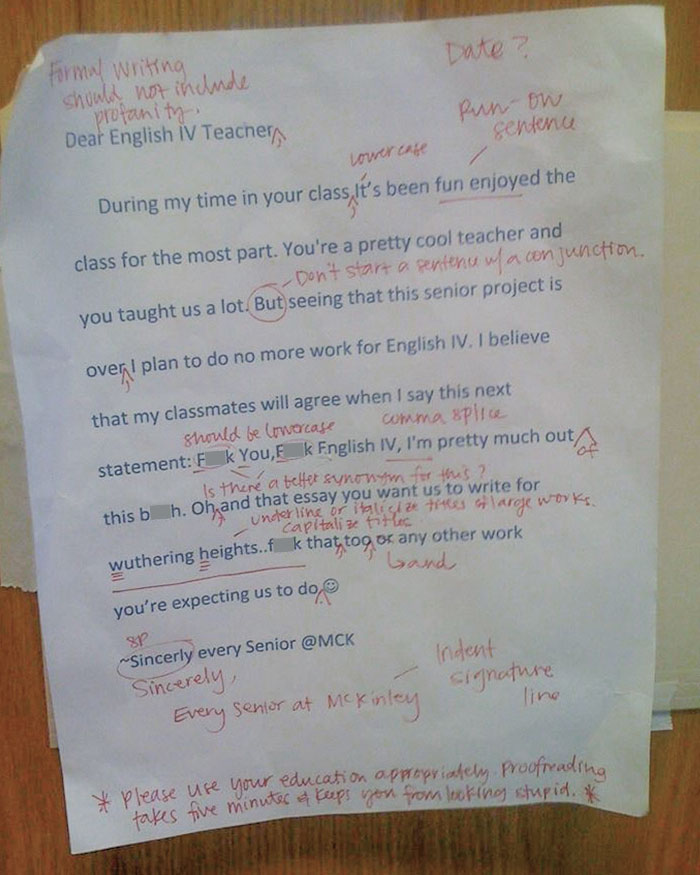 Formal writing
should not include
profanity.
Date?
Dear English IV Teacher
Run-on
sentence
lowercase
During my time in your class,It's been fun enjoyed the
class for the most part. You're a pretty cool teacher and
Don't start a sentence w/ a conjunction.
you taught us a lot. But seeing that this senior project is
over, I plan to do no more work for English IV. I believe
that my classmates will agree when I say this next
should be lowercase
comma splice
statement: F k You,F k English IV, I'm pretty much out
of
Is there a better synonym for this?
this b h. Oh, and that essay you want us to write for
underline or italicize titles of large works.
capitalize titles
wuthering heights..f k that, too, or any other work
and
you're expecting us to do. ☺
sp
~Sincerly every Senior @MCK
Sincerely,
Every Senior at McKinley
Indent
signature
line
* Please use your education appropriately. Proofreading
takes five minutes & keeps you from looking stupid. *